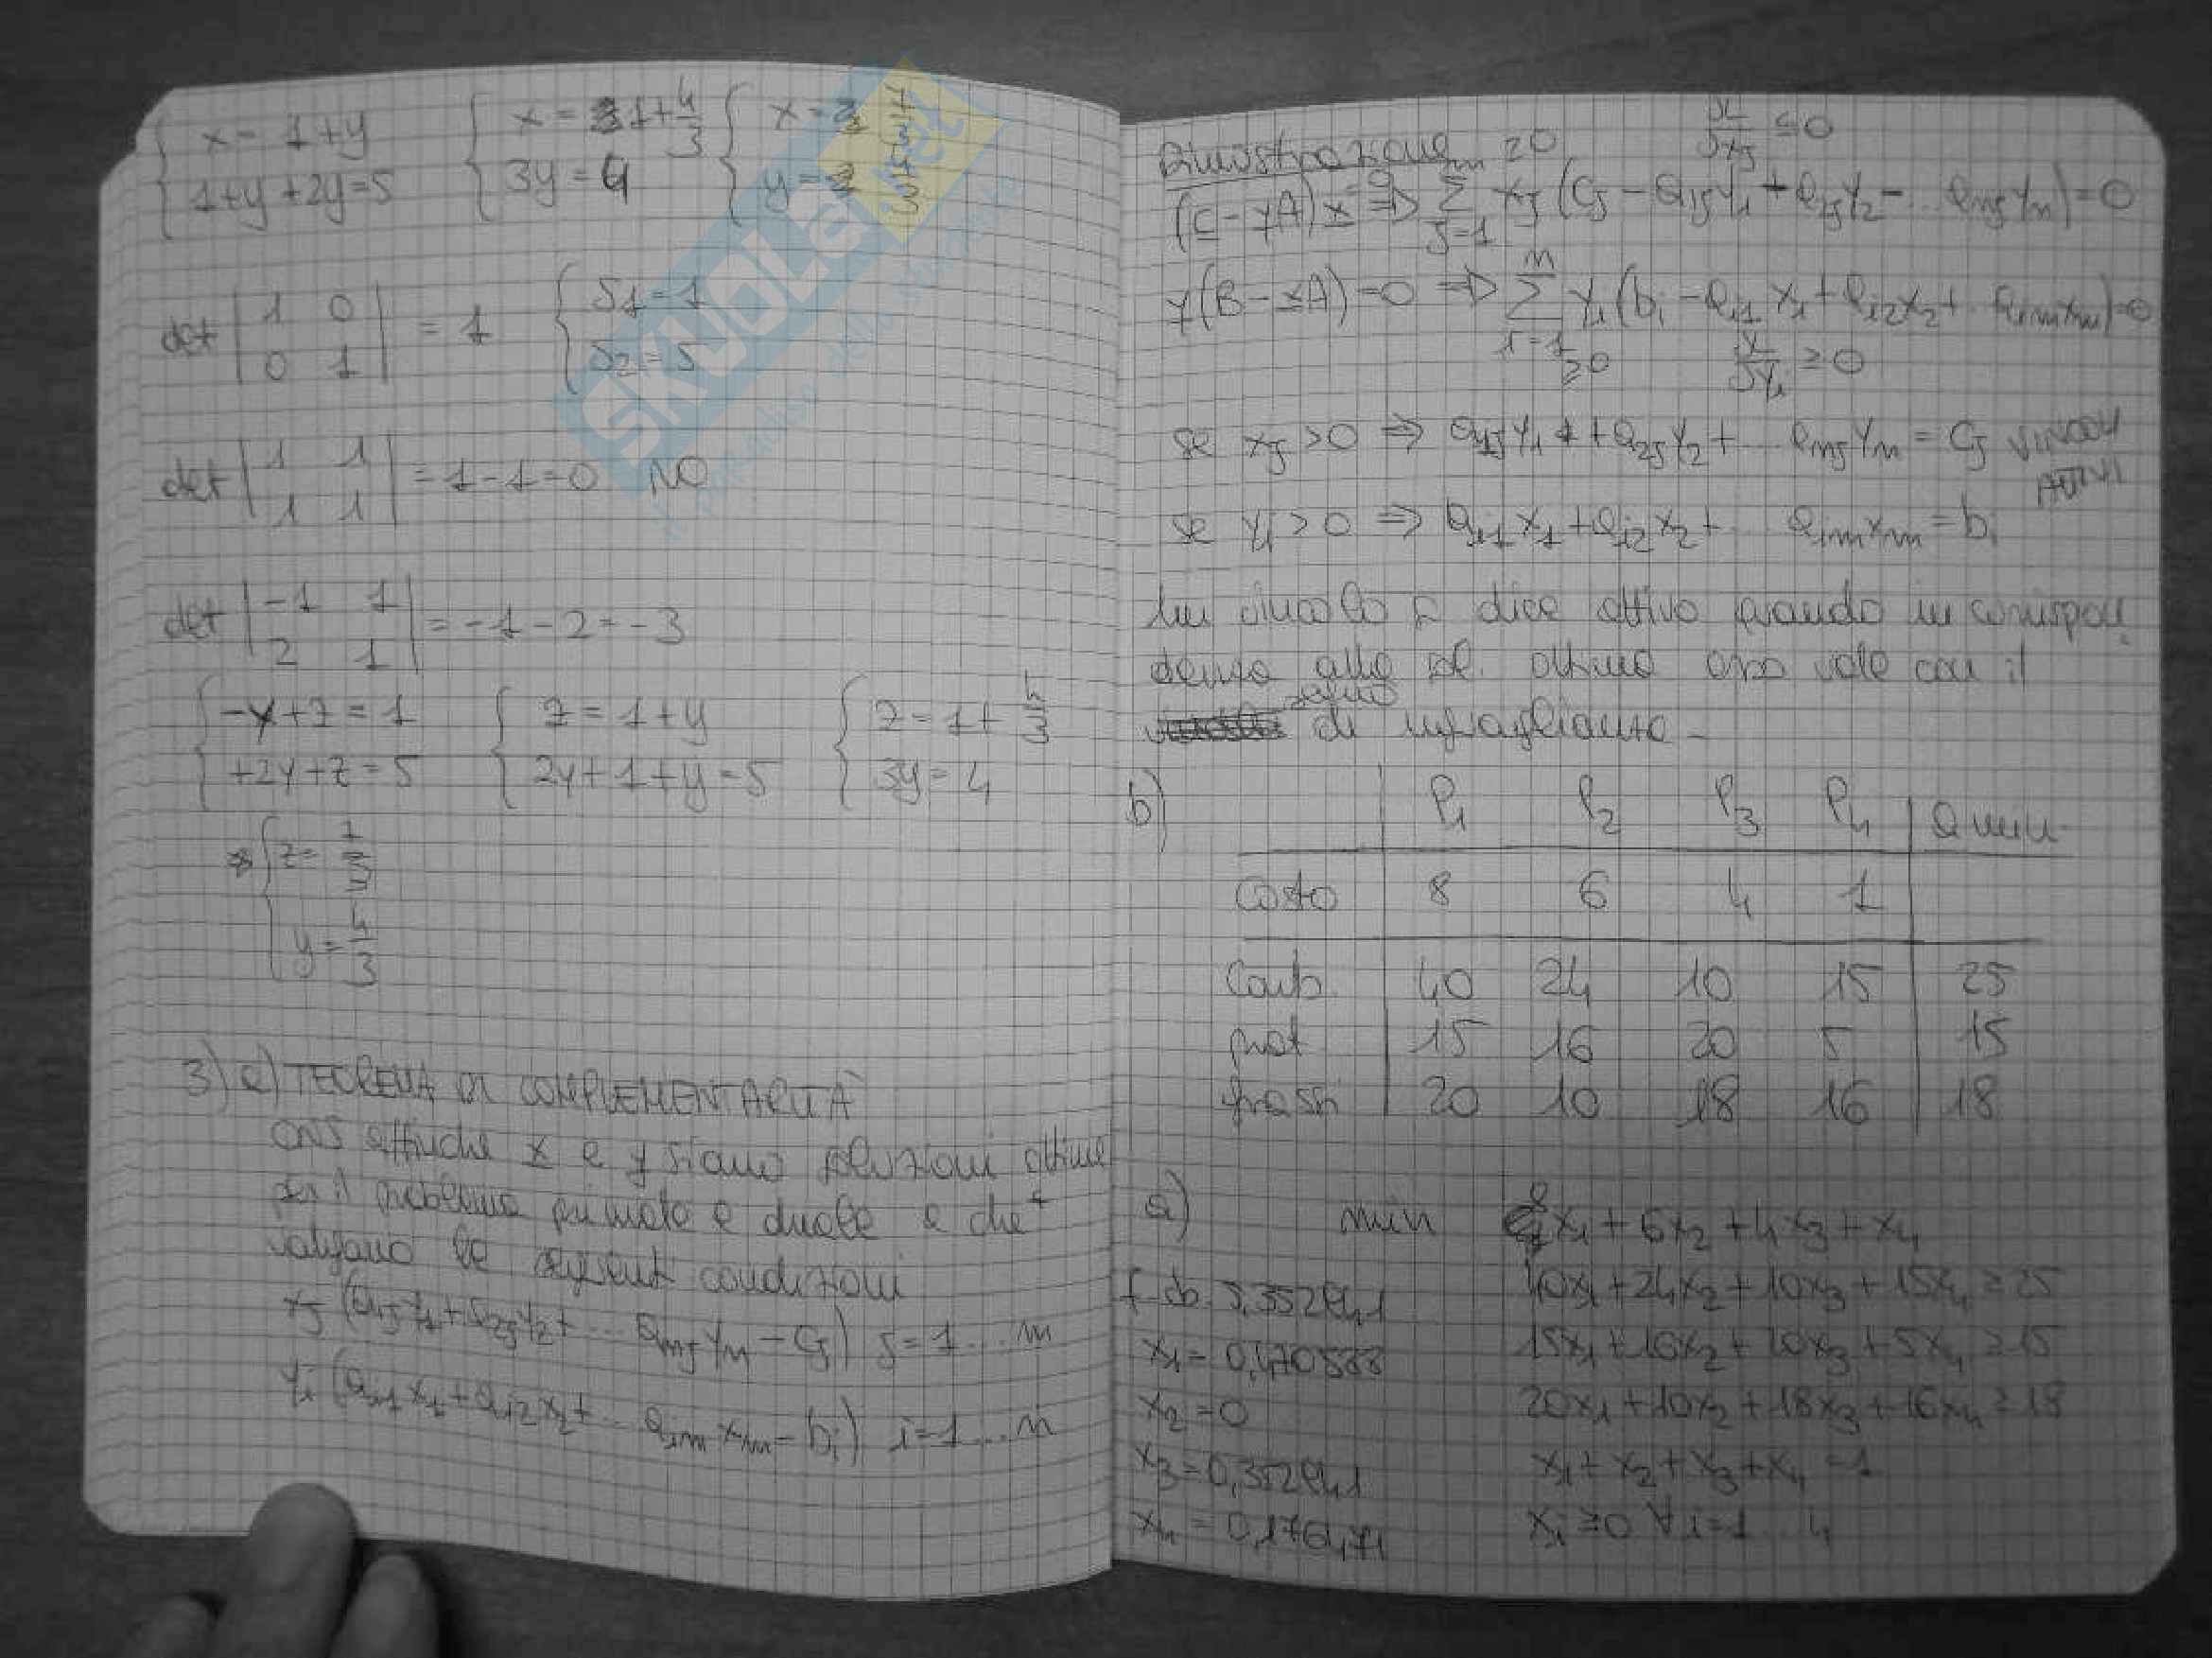 x = 1+y
1+y+2y=5
x = 1+4/3
3y=4
x = 7/3
y = 4/3
det |1 0| = 1
|0 1|
S1=1
S2=5
det |1 1| = 1-1=0 NO
|1 1|
det |-1 1| = -1-2=-3
|2 1|
-y+z=1
+2y+z=5
z=1+y
2y+1+y=5
z=1+4/3
3y=4
z= 7/3
y= 4/3
3) a) TEOREMA DI COMPLEMENTARITÀ
CNS affinché x e y siano soluzioni ottime
per il problema primale e duale è che
valgano le seguenti condizioni
xj (a1jy1+a2jy2+... amjym-cj) j=1...n
yi (ai1x1+ai2x2+... ainxn-bi) i=1...m
Dimostrazione ≥0 ≤0
(c-yA)x=0 ⇒ Σ j=1 xj (cj-a1jy1+a2jy2-... amjym)=0
y(B-xA)=0 ⇒ Σ i=1 yi (bi-ai1x1+ai2x2+... ainxn)=0
≥0 ≥0
se xj>0 ⇒ a1jy1+a2jy2+... amjym=cj VINCOLI
ATTIVI
se yi>0 ⇒ ai1x1+ai2x2+... ainxn=bi
Un vincolo si dice attivo quando in corrispon
denza alla sol. ottima esso vale con il
segno
di uguaglianza -
b) P1 P2 P3 P4 Q min
Costo 8 6 4 1
Carb. 40 24 10 15 25
prot 15 16 20 5 15
grassi 20 10 18 16 18
a) min 8x1+6x2+4x3+x4
f. ob. 5,352941 40x1+24x2+10x3+15x4≥25
x1=0,470588 15x1+16x2+20x3+5x4≥15
x2=0 20x1+10x2+18x3+16x4≥18
x3=0,352941 x1+x2+x3+x4=1
x4=0,176471 xi≥0 ∀i=1...4
SKUOLA.net